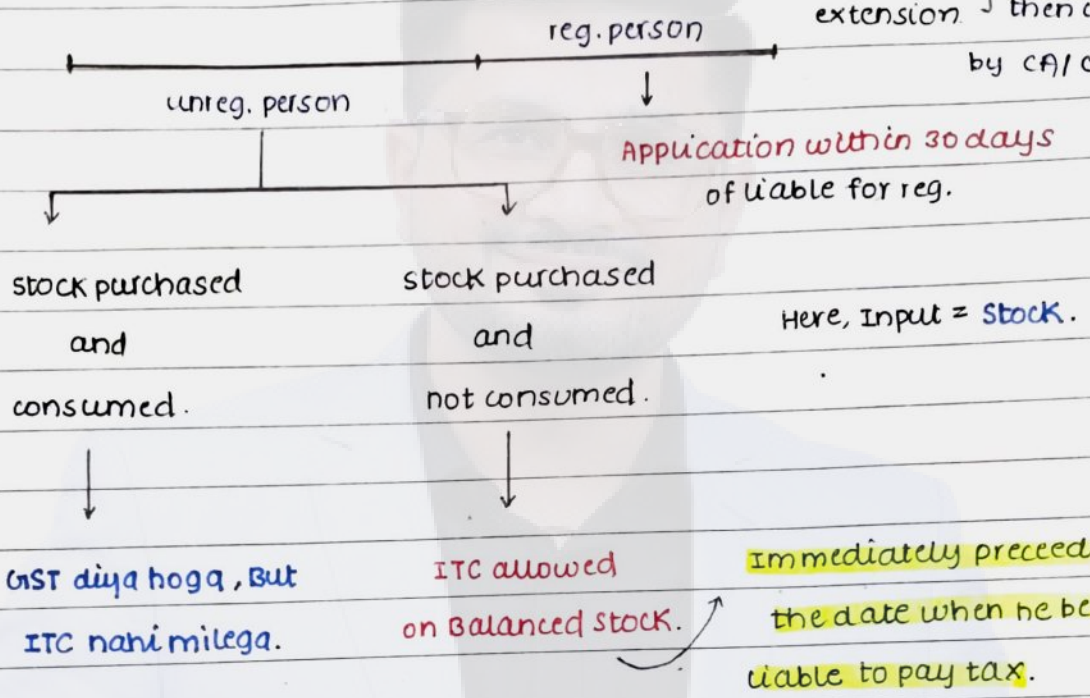 extension then
reg. person
by CA/
unreg. person
Application within 30 days
of liable for reg.
stock purchased
and
consumed.
stock purchased
and
not consumed.
Here, Input = Stock.
GST diya hoga, But
ITC nahi milega.
ITC allowed
on Balanced Stock.
Immediately preceed
the date when he be
liable to pay tax.